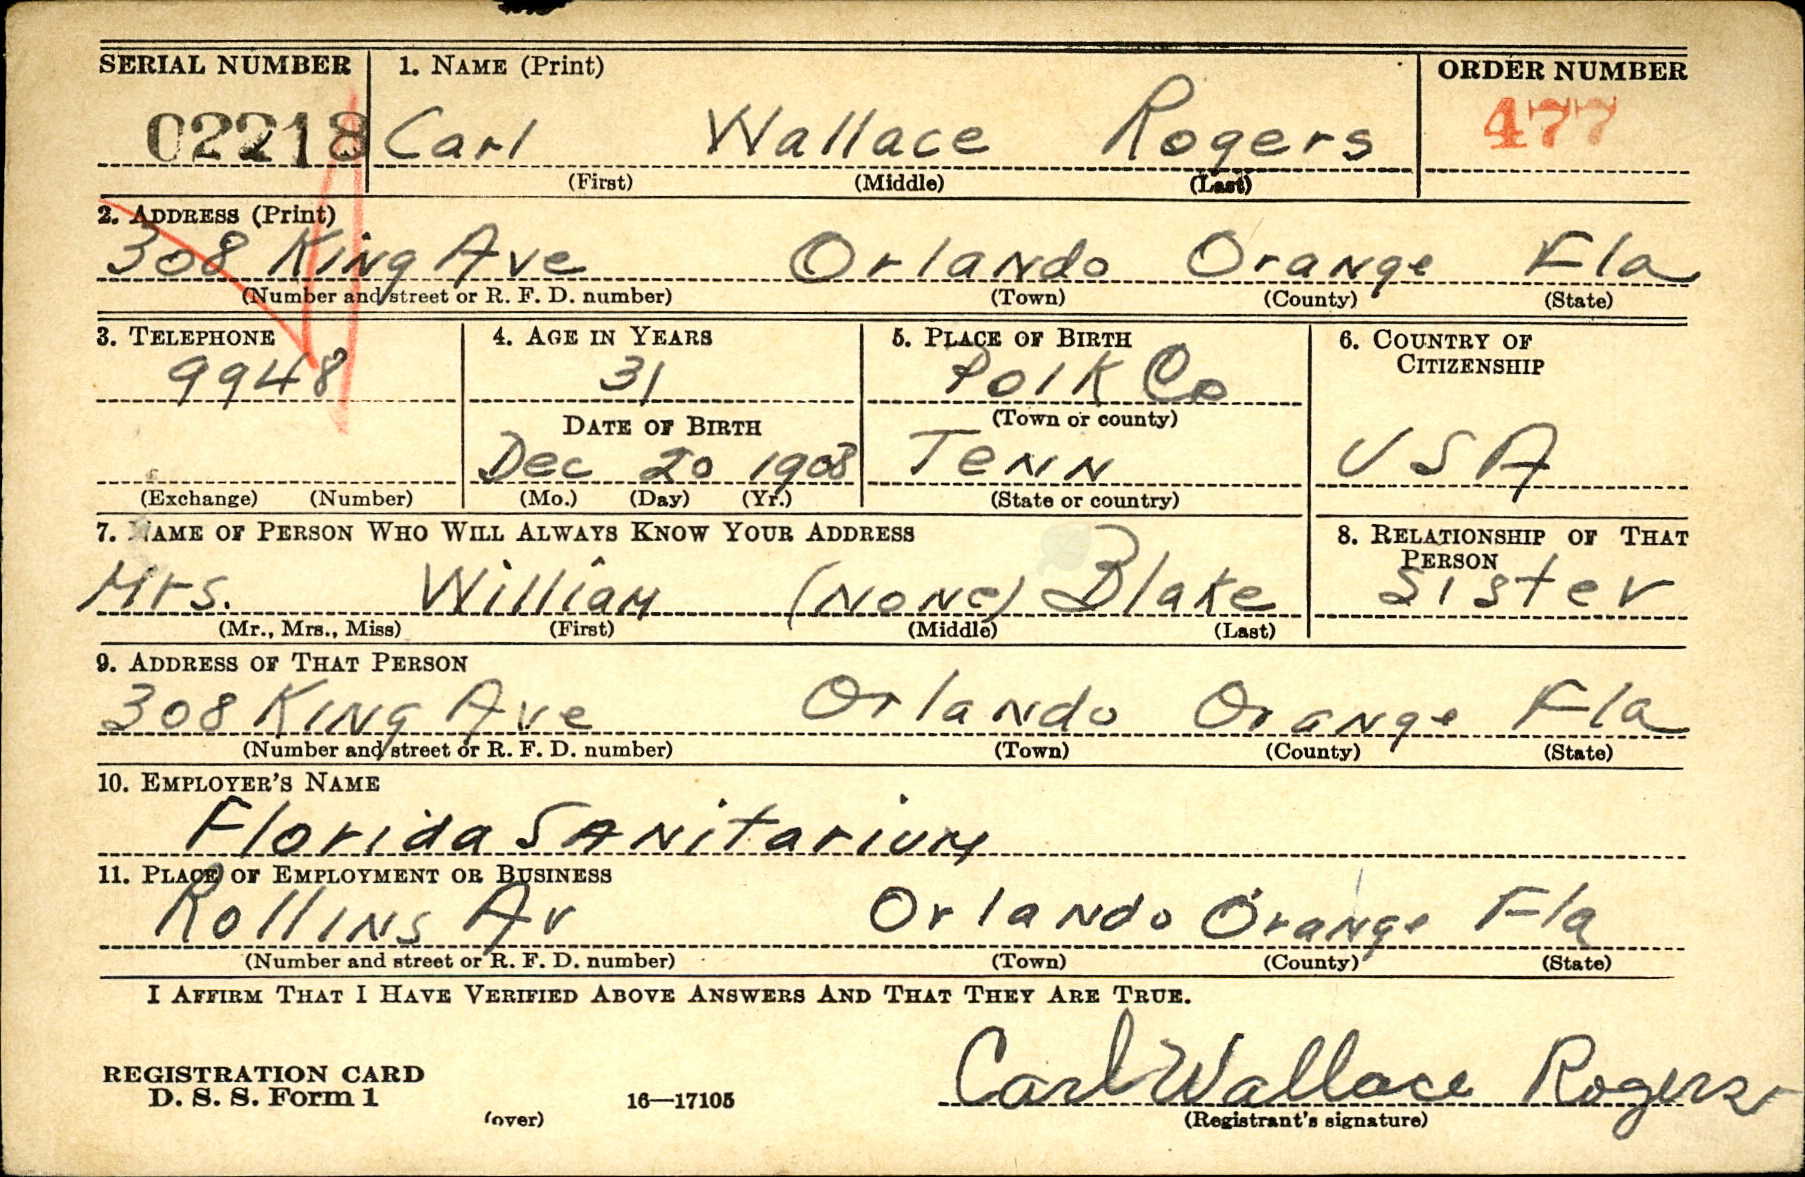 SERIAL NUMBER 1. NAME (Print) ORDER NUMBER
02218 Carl Wallace Rogers 477
(First) (Middle) (Last)
2. ADDRESS (Print)
308 King Ave Orlando Orange Fla
(Number and street or R. F. D. number) (Town) (County) (State)
3. TELEPHONE 4. AGE IN YEARS 5. PLACE OF BIRTH 6. COUNTRY OF CITIZENSHIP
9948 31 Polk Co
DATE OF BIRTH (Town or county)
Dec 20 1908 Tenn USA
(Exchange) (Number) (Mo.) (Day) (Yr.) (State or country)
7. NAME OF PERSON WHO WILL ALWAYS KNOW YOUR ADDRESS 8. RELATIONSHIP OF THAT PERSON
Mrs. William (None) Blake Sister
(Mr., Mrs., Miss) (First) (Middle) (Last)
9. ADDRESS OF THAT PERSON
308 King Ave Orlando Orange Fla
(Number and street or R. F. D. number) (Town) (County) (State)
10. EMPLOYER'S NAME
Florida Sanitarium
11. PLACE OF EMPLOYMENT OR BUSINESS
Rollins Av Orlando Orange Fla
(Number and street or R. F. D. number) (Town) (County) (State)
I AFFIRM THAT I HAVE VERIFIED ABOVE ANSWERS AND THAT THEY ARE TRUE.
Carl Wallace Rogers
REGISTRATION CARD
D. S. S. Form 1 (over) 16—17105 (Registrant's signature)